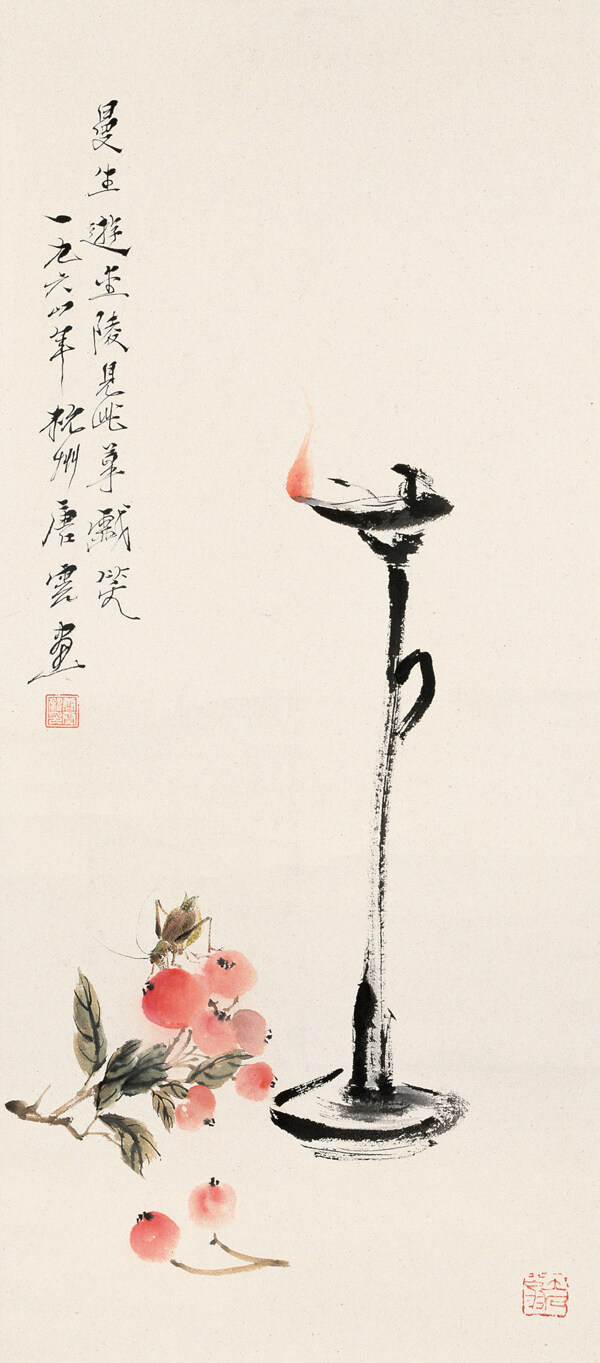 曼生遊陵見此草戲笑
一九六年杭州唐雲畫